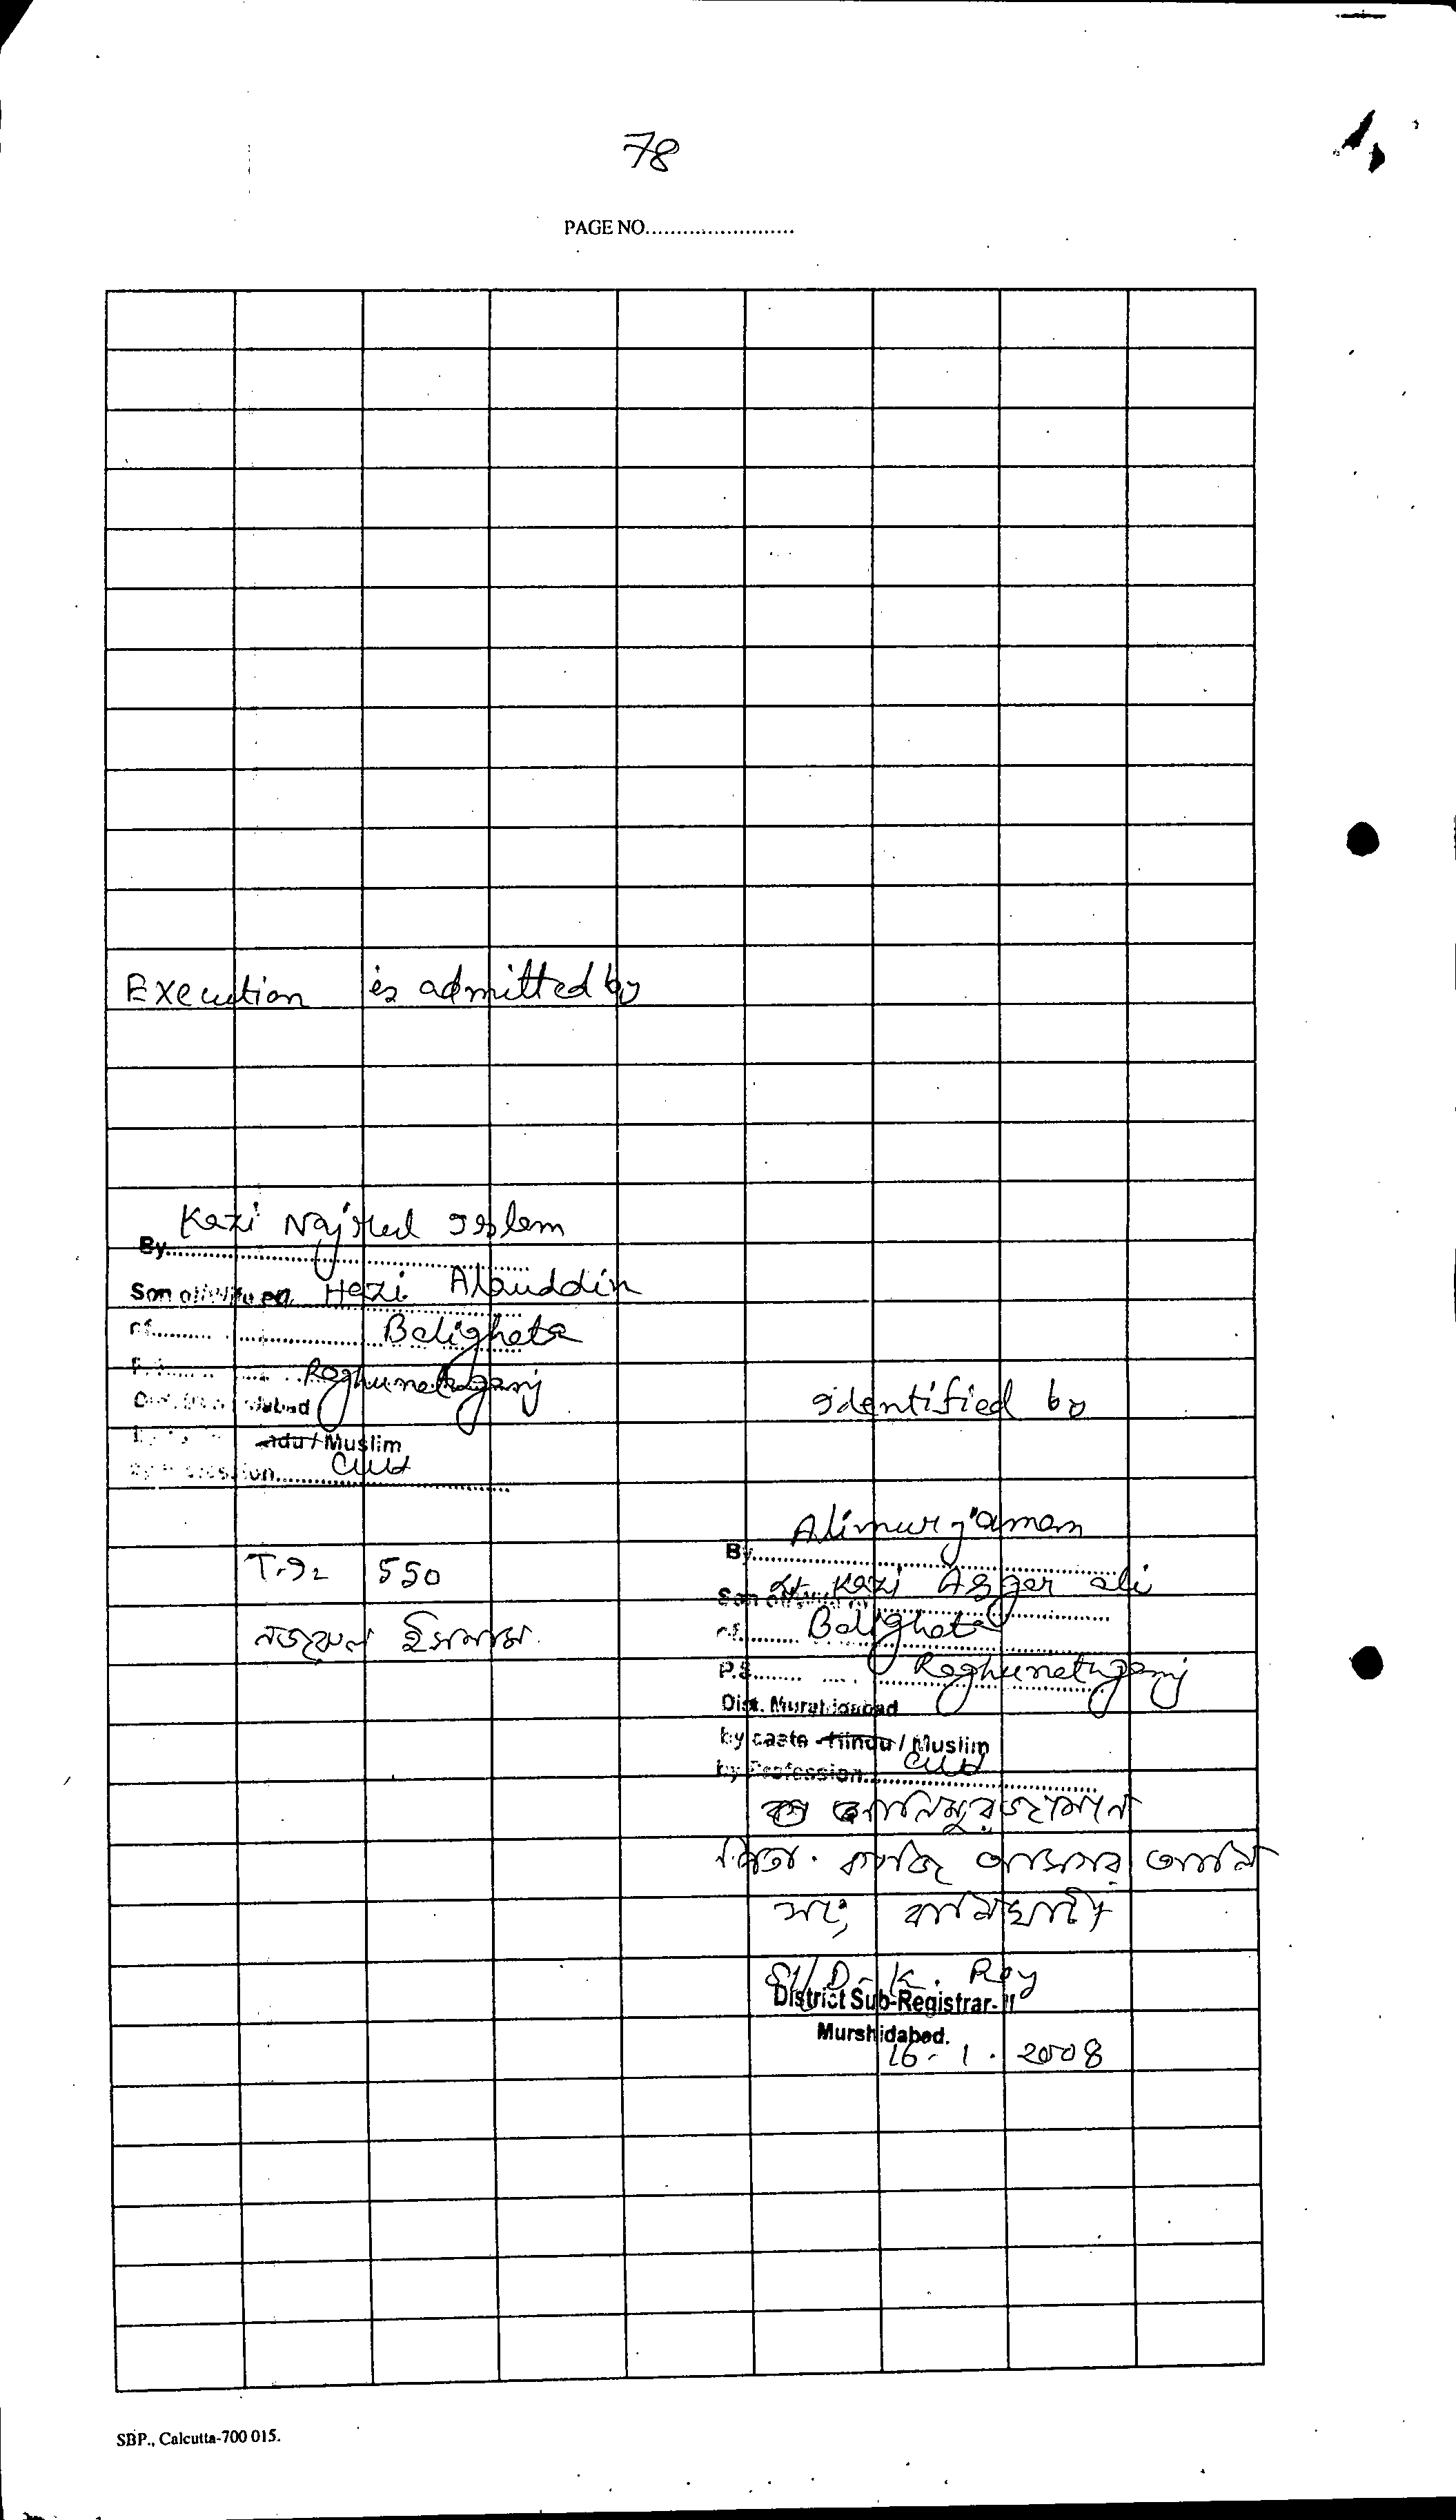 78
PAGE NO........................
Execution is admitted by
Kazi Najrul Islam
By
Son of/Wife of Hazi Alauddin
of Balighata
P.S. Raghunathganj
Dist. Murshidabad
Hindu / Muslim
by Profession
Identified by
T.I. 550
নজরুল ইসলাম
Alimurjaman
By
Son of Lt. Kazi Asgar ali
of Balighata
P.S. Raghunathganj
Dist. Murshidabad
by caste Hindu / Muslim
by Profession
আলিমুরজামান
পিতা. কাজি আসগর আলি
সাং বালিঘাটা
Sd/ D. K. Roy
District Sub-Registrar-II
Murshidabad.
16. 1. 2008
SBP., Calcutta-700 015.